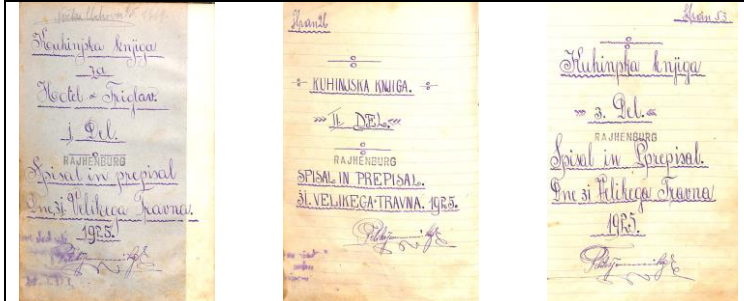 Kuhinjska knjiga
za
Hotel „Triglav.
1. Del.
RAJHENBURG
Spisal in prepisal
Dne 31 Velikega Travna.
1925.
Stran 26
KUHINJSKA KNJIGA.
II. DEL.
RAJHENBURG
SPISAL IN PREPISAL.
31. VELIKEGA-TRAVNA. 1925.
Stran 53
Kuhinjska knjiga
3. Del.
RAJHENBURG
Spisal in Prepisal.
Dne 31 Velikega Travna
1925.